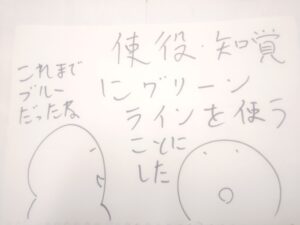 使役・知覚
にグリーン
ラインを使う
ことに
した
これまで
ブルー
だったね